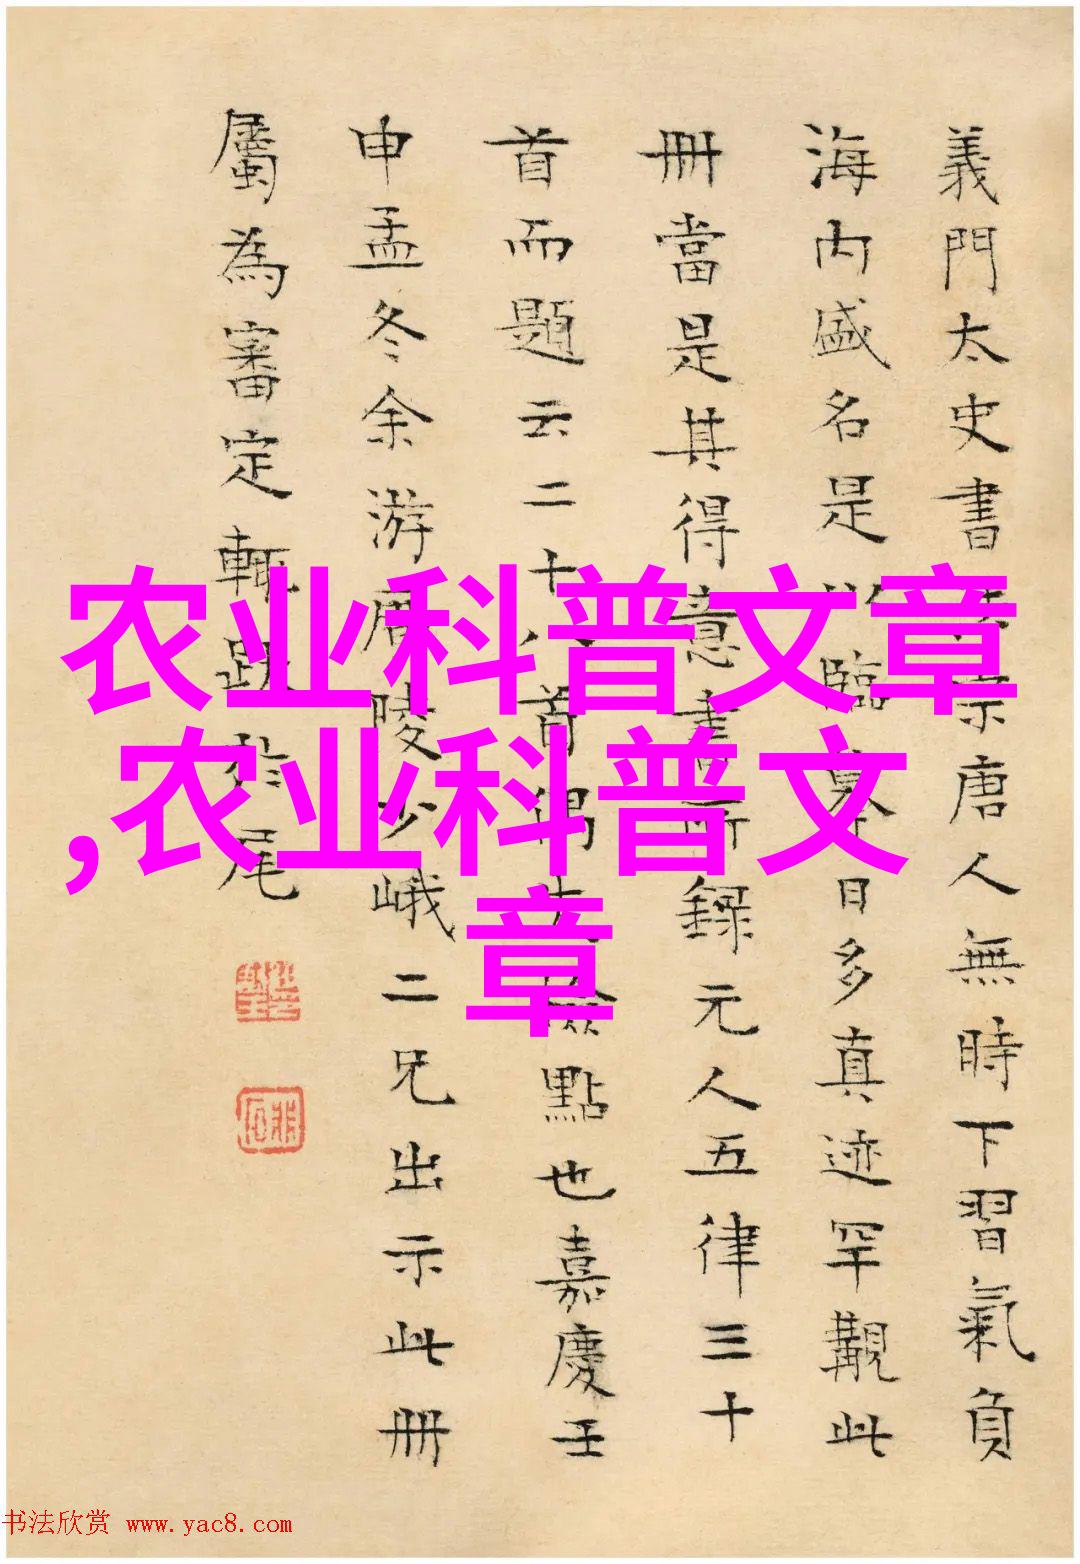 義門太史書宗唐人無時下習氣負
海内盛名是以臨日多真迹罕覯此
冊當是其得意書所録元人五律三十
首而題云二十八首偶失檢點也嘉慶壬
申孟冬余游廣陵少峨二兄出示此冊
屬為審定輙跋於尾
农业科普文章
,农业科普文
章
书法欣赏 www.yac8.com